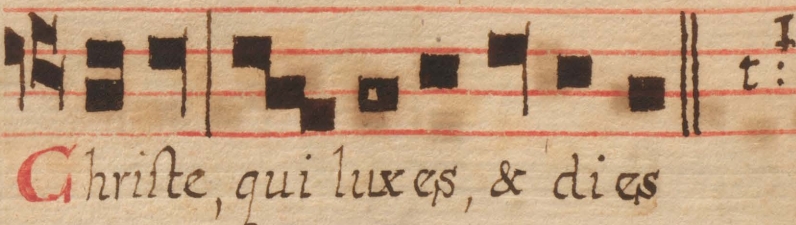 t: I
Chriſte, qui lux es, & dies